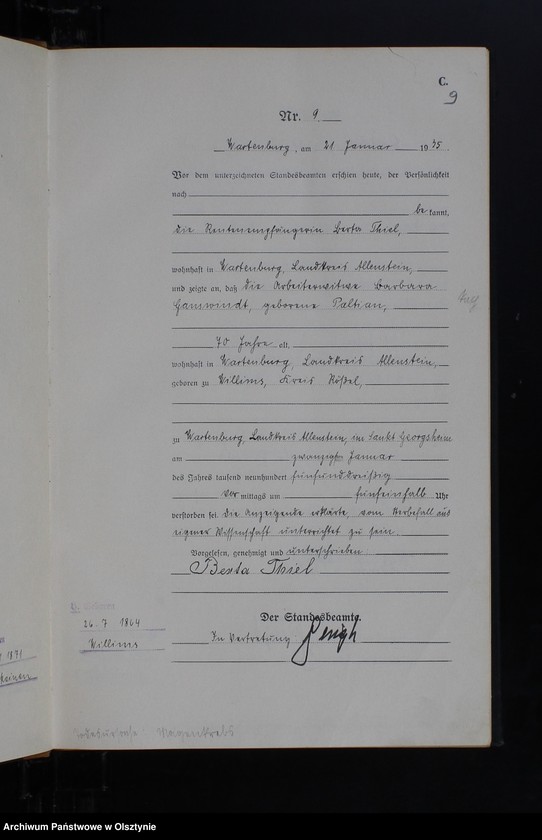 C.
9
Nr. 9
Wartenburg, am 21 Januar 1935.
Vor dem unterzeichneten Standesbeamten erschien heute, der Persönlichkeit
nach
be kannt,
die Rentenempfängerin Berta Thiel,
wohnhaft in Wartenburg, Landkreis Allenstein,
und zeigte an, daß die Arbeiterwitwe Barbara
Ganswindt, geborene Paltian,
70 Jahre alt,
wohnhaft in Wartenburg, Landkreis Allenstein,
geboren zu Willims, Kreis Rößel,
zu Wartenburg, Landkreis Allenstein, im Sankt Georgsheim
am zwanzigsten Januar
des Jahres tausend neunhundert fünfunddreißig
Vor mittags um fünfeinhalb Uhr
verstorben sei. Die Anzeigende erklärte, vom Sterbefall aus
eigner Wissenschaft unterrichtet zu sein.
Vorgelesen, genehmigt und unterschrieben
Berta Thiel
Der Standesbeamte.
In Vertretung:
26. 7 1864
Willims
1871
Todesursache: Magenkrebs
Archiwum Państwowe w Olsztynie